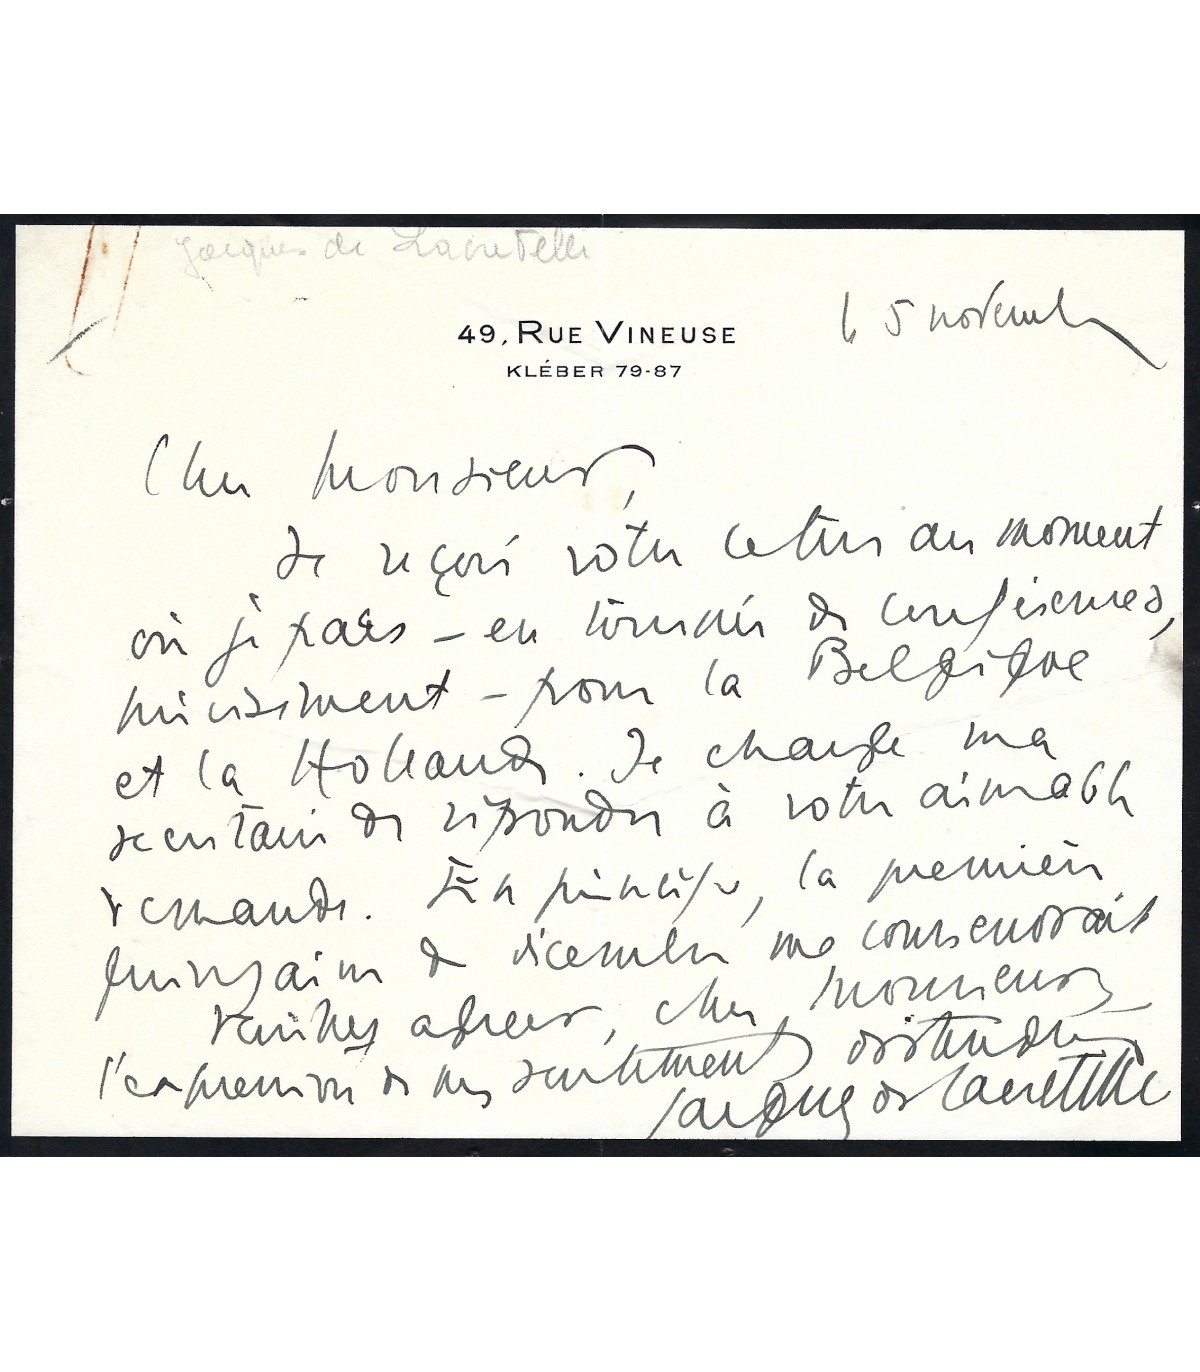 Jacques de Lacretelle
49, RUE VINEUSE
KLÉBER 79-87
le 5 novembre
Cher Monsieur,
Je reçois votre lettre au moment
où je pars – en tournée de conférences,
précisément – pour la Belgique
et la Hollande. Je charge ma
secrétaire de répondre à votre aimable
demande. En principe, la première
quinzaine de décembre me conviendrait
Veuillez agréer, cher Monsieur,
l'expression de mes sentiments distingués
Jacques de Lacretelle